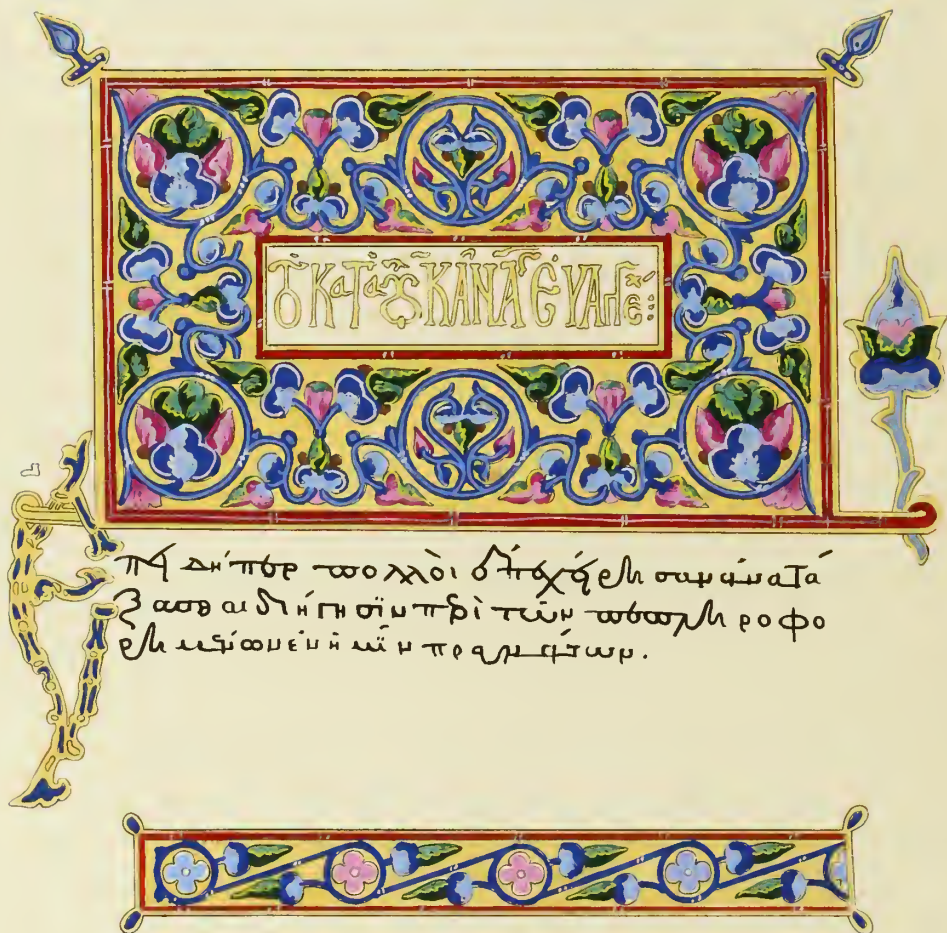 Τὸ ΚαΤὰ ΛουΚᾶΝ ἉΓ ΕΥΑΓΓΕ:
Ἐπειδήπερ πολλοὶ ἐπεχείρησαν ἀνατά
ξασθαι διήγησϊν περὶ τῶν πεπληροφο
ρημένων ἐν ἡμῖν πραγμάτων.